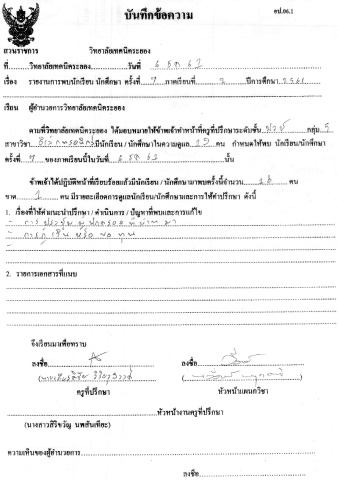 อป.06.1
บันทึกข้อความ
ส่วนราชการ วิทยาลัยเทคนิคระยอง
ที่ วิทยาลัยเทคนิคระยอง วันที่ 6 ธค 61
เรื่อง รายงานการพบนักเรียน นักศึกษา ครั้งที่ 7 ภาคเรียนที่ 2 ปีการศึกษา 2561
เรียน ผู้อำนวยการวิทยาลัยเทคนิคระยอง
ตามที่วิทยาลัยเทคนิคระยอง ได้มอบหมายให้ข้าพเจ้าทำหน้าที่ครูที่ปรึกษาระดับชั้น กลุ่ม 5
สาขาวิชา มีนักเรียน / นักศึกษาในความดูแล 19 คน กำหนดให้พบ นักเรียน/นักศึกษา
ครั้งที่ 7 ของภาคเรียนนี้ในวันที่ 6 ธค 61 นั้น
ข้าพเจ้าได้ปฏิบัติหน้าที่เรียบร้อยแล้วมีนักเรียน / นักศึกษามาพบครั้งนี้จำนวน 18 คน
ขาด 1 คน มีรายละเอียดการดูแลนักเรียน/นักศึกษาและการให้คำปรึกษา ดังนี้
1. เรื่องที่ให้คำแนะนำปรึกษา / ดำเนินการ / ปัญหาที่พบและการแก้ไข
- การประชุมผู้ปกครองที่ผ่านมา
- การกู้เงิน หรือ ขอ ทุน
2. รายการเอกสารที่แนบ
จึงเรียนมาเพื่อทราบ
ลงชื่อ ลงชื่อ
ครูที่ปรึกษา หัวหน้าแผนกวิชา
หัวหน้างานครูที่ปรึกษา
(นางสาวสิริขวัญ นพสันเทียะ)
ความเห็นของผู้อำนวยการ
ลงชื่อ